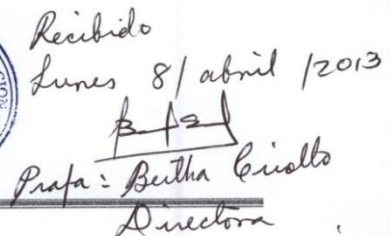 Recibido
Lunes 8/ abril /2013
Profa: Bertha Criollo
Directora